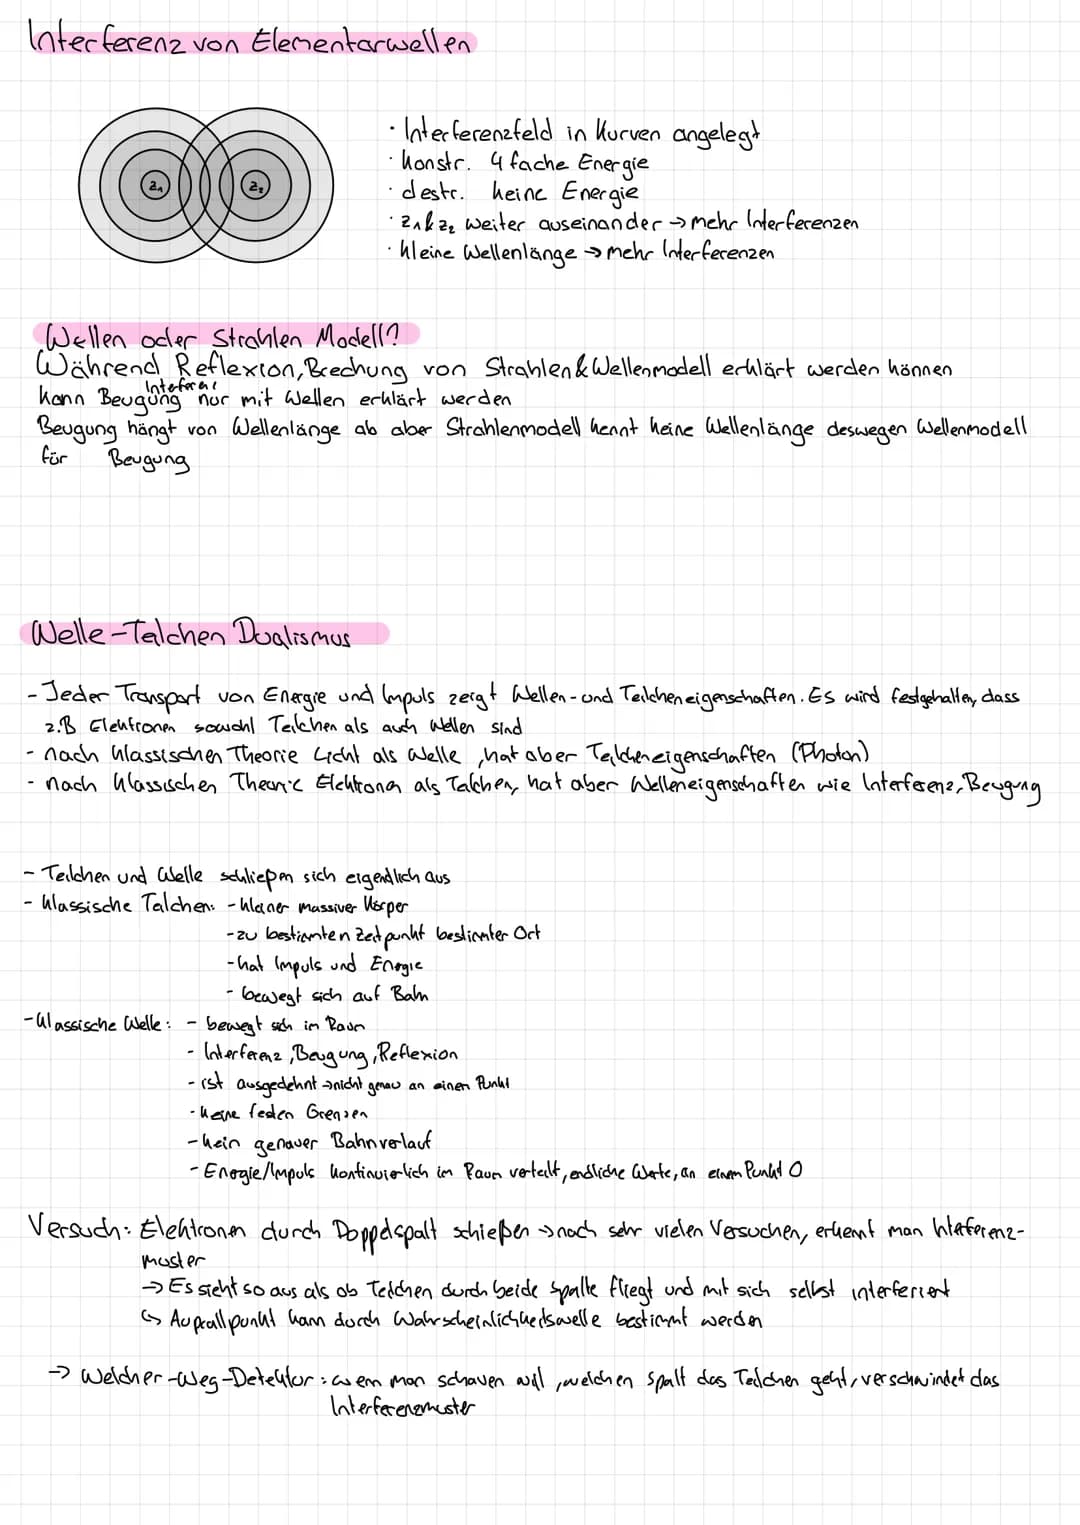 Interferenz von Elementarwellen
z₁ z₂
· Interferenzfeld in Kurven angelegt
· konstr. 4 fache Energie
· destr. keine Energie
· z₁ & z₂ weiter auseinander → mehr Interferenzen
· kleine Wellenlänge → mehr Interferenzen
Wellen oder Strahlen Modell?
Während Reflexion, Brechung von Strahlen & Wellenmodell erklärt werden können
Interferenz
kann Beugung nur mit Wellen erklärt werden
Beugung hängt von Wellenlänge ab aber Strahlenmodell kennt keine Wellenlänge deswegen Wellenmodell
für Beugung
Welle-Teilchen Dualismus
- Jeder Transport von Energie und Impuls zeigt Wellen- und Teilcheneigenschaften. Es wird festgehalten, dass
z.B Elektronen sowohl Teilchen als auch Wellen sind
- nach klassischen Theorie Licht als Welle, hat aber Teilcheneigenschaften (Photon)
- nach klassischen Theorie Elektronen als Teilchen, hat aber Welleneigenschaften wie Interferenz, Beugung
- Teilchen und Welle schließen sich eigendlich aus
- klassische Teilchen: - kleiner massiver Körper
- zu bestimmten Zeitpunkt bestimmter Ort
- hat Impuls und Energie
- bewegt sich auf Bahn
- klassische Welle: - bewegt sich im Raum
- Interferenz, Beugung, Reflexion
- ist ausgedehnt → nicht genau an einen Punkt
- keine festen Grenzen
- kein genauer Bahnverlauf
- Energie/Impuls kontinuierlich im Raum verteilt, endliche Werte, an einem Punkt 0
Versuch: Elektronen durch Doppelspalt schießen → nach sehr vielen Versuchen, erkennt man Interferenz-
muster
→ Es sieht so aus als ob Teilchen durch beide Spalte fliegt und mit sich selbst interferiert
↳ Auprallpunkt kann durch Wahrscheinlichkeitswelle bestimmt werden
→ Welcher-Weg-Detektor: wenn man schauen will, welchen Spalt das Teilchen geht, verschwindet das
Interferenzmuster